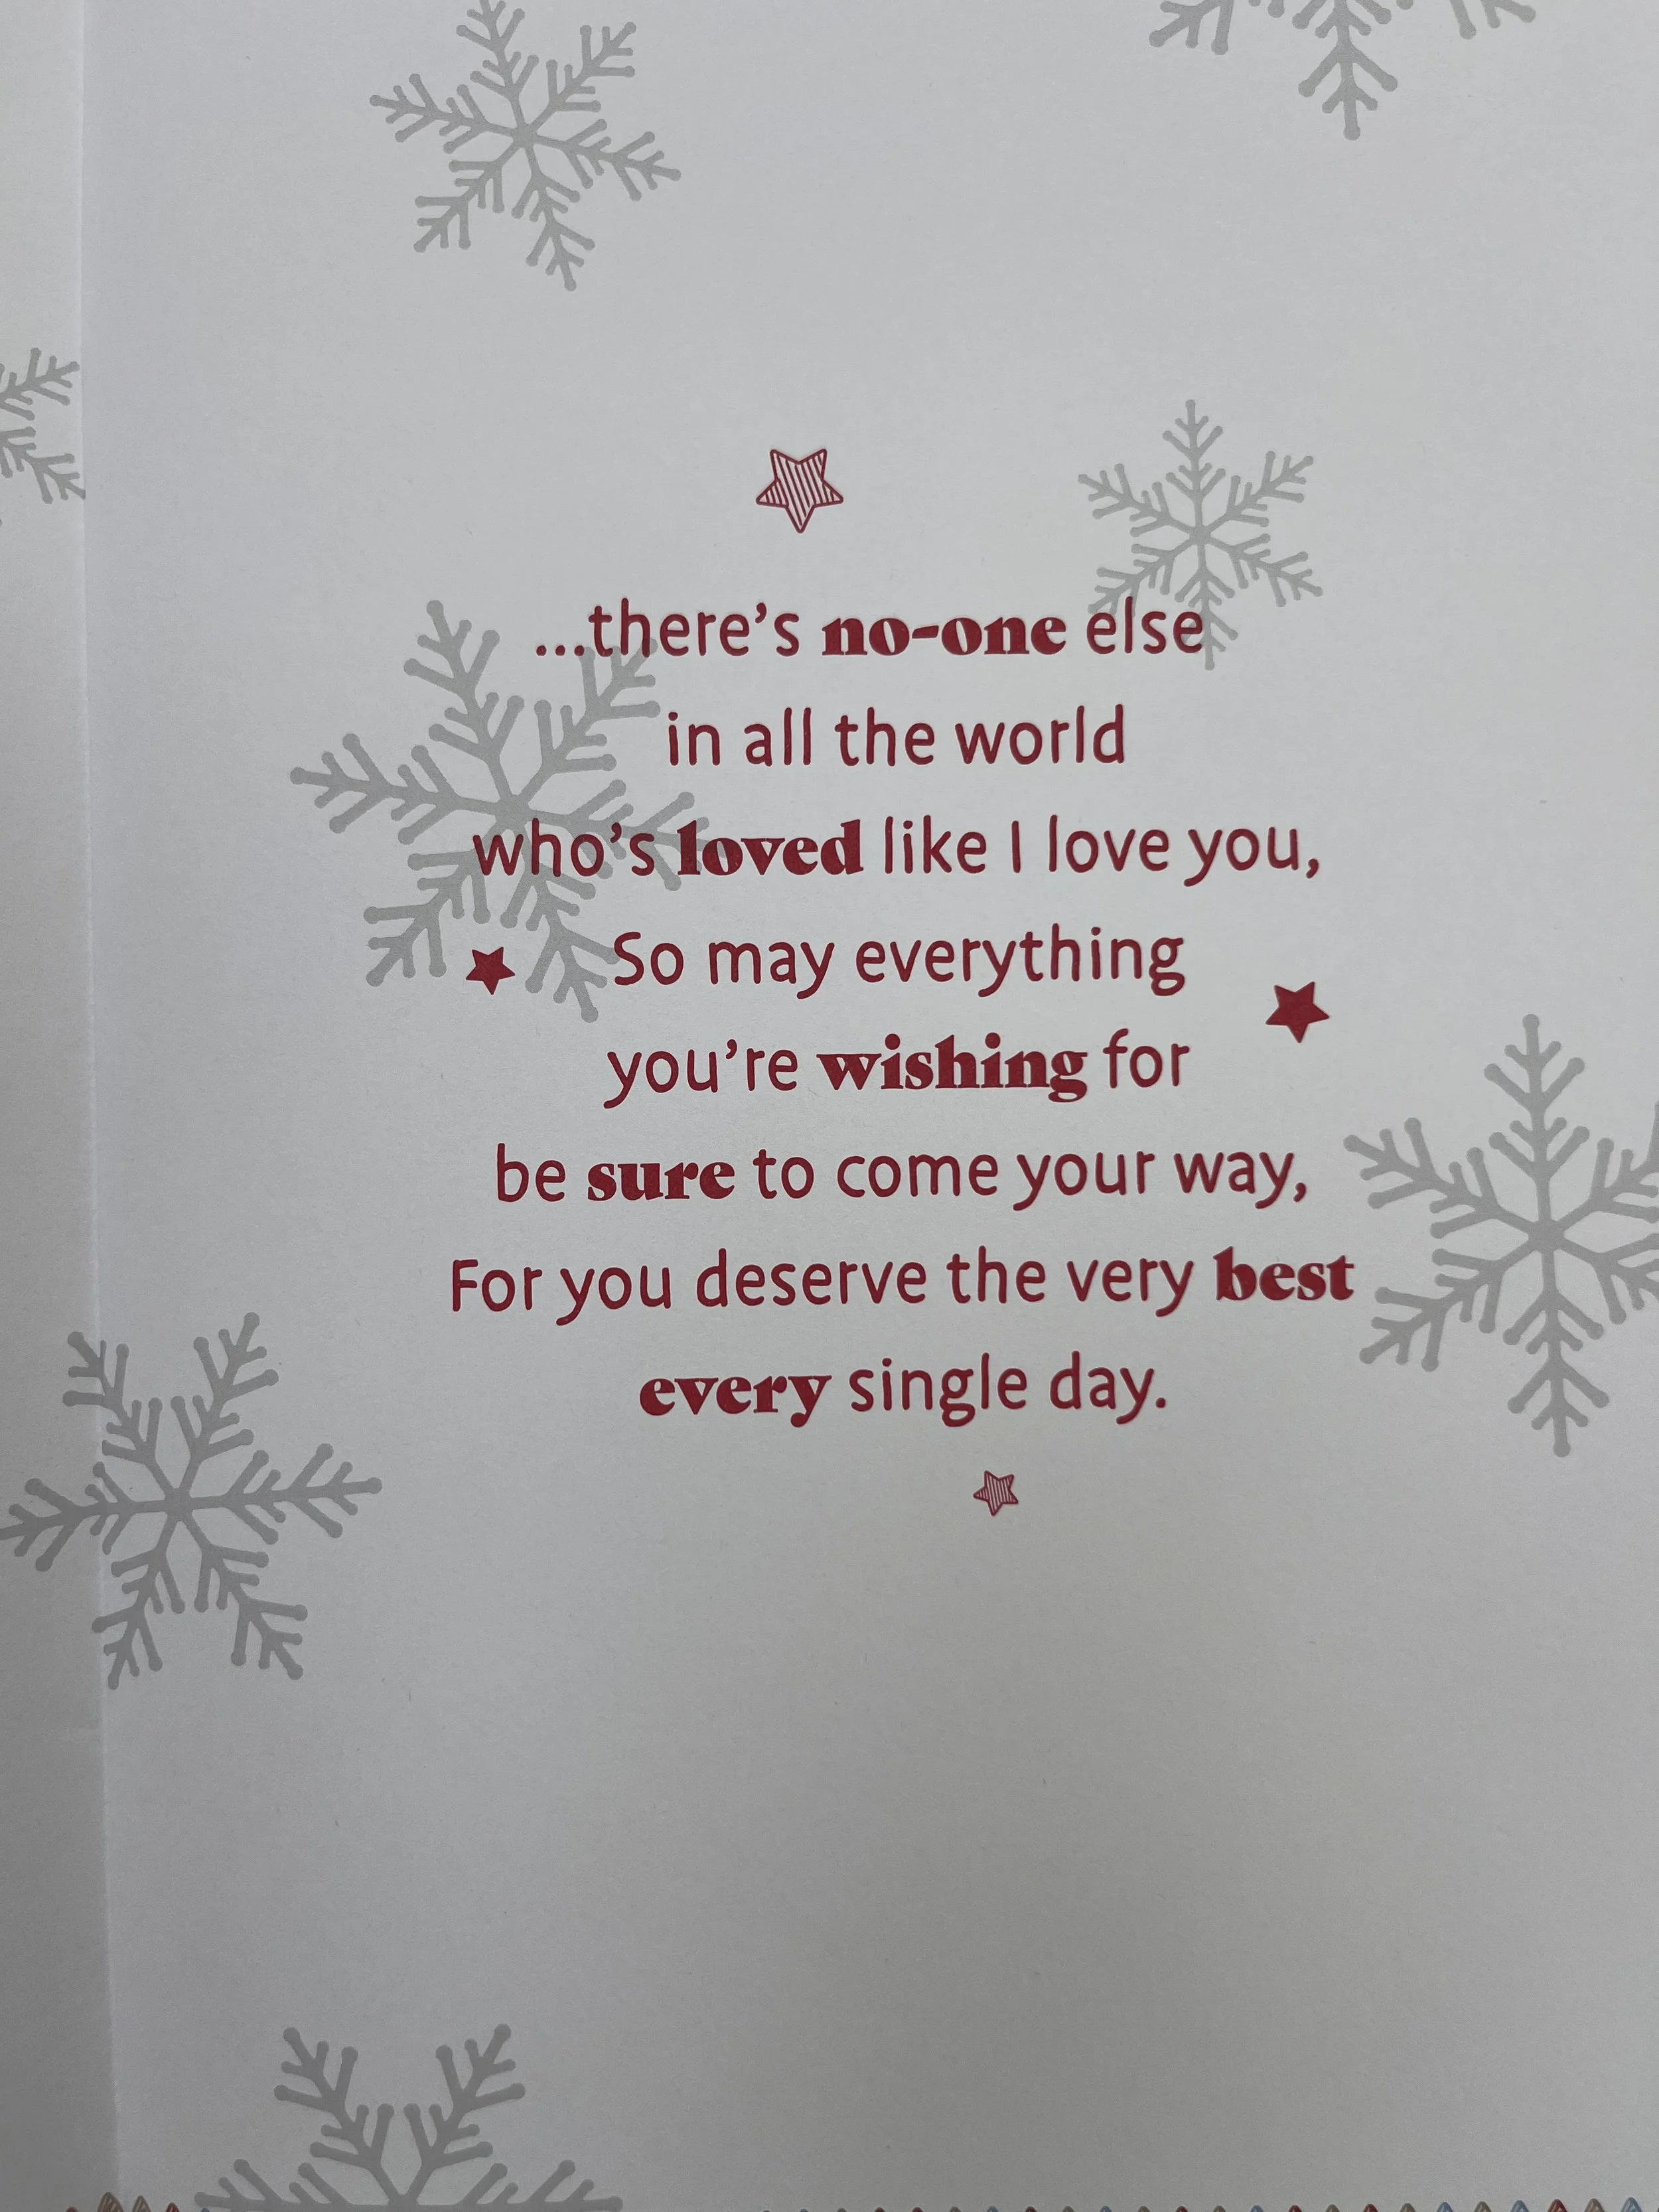 ...there's no-one else
in all the world
who's loved like I love you,
So may everything
you're wishing for
be sure to come your way,
For you deserve the very best
every single day.